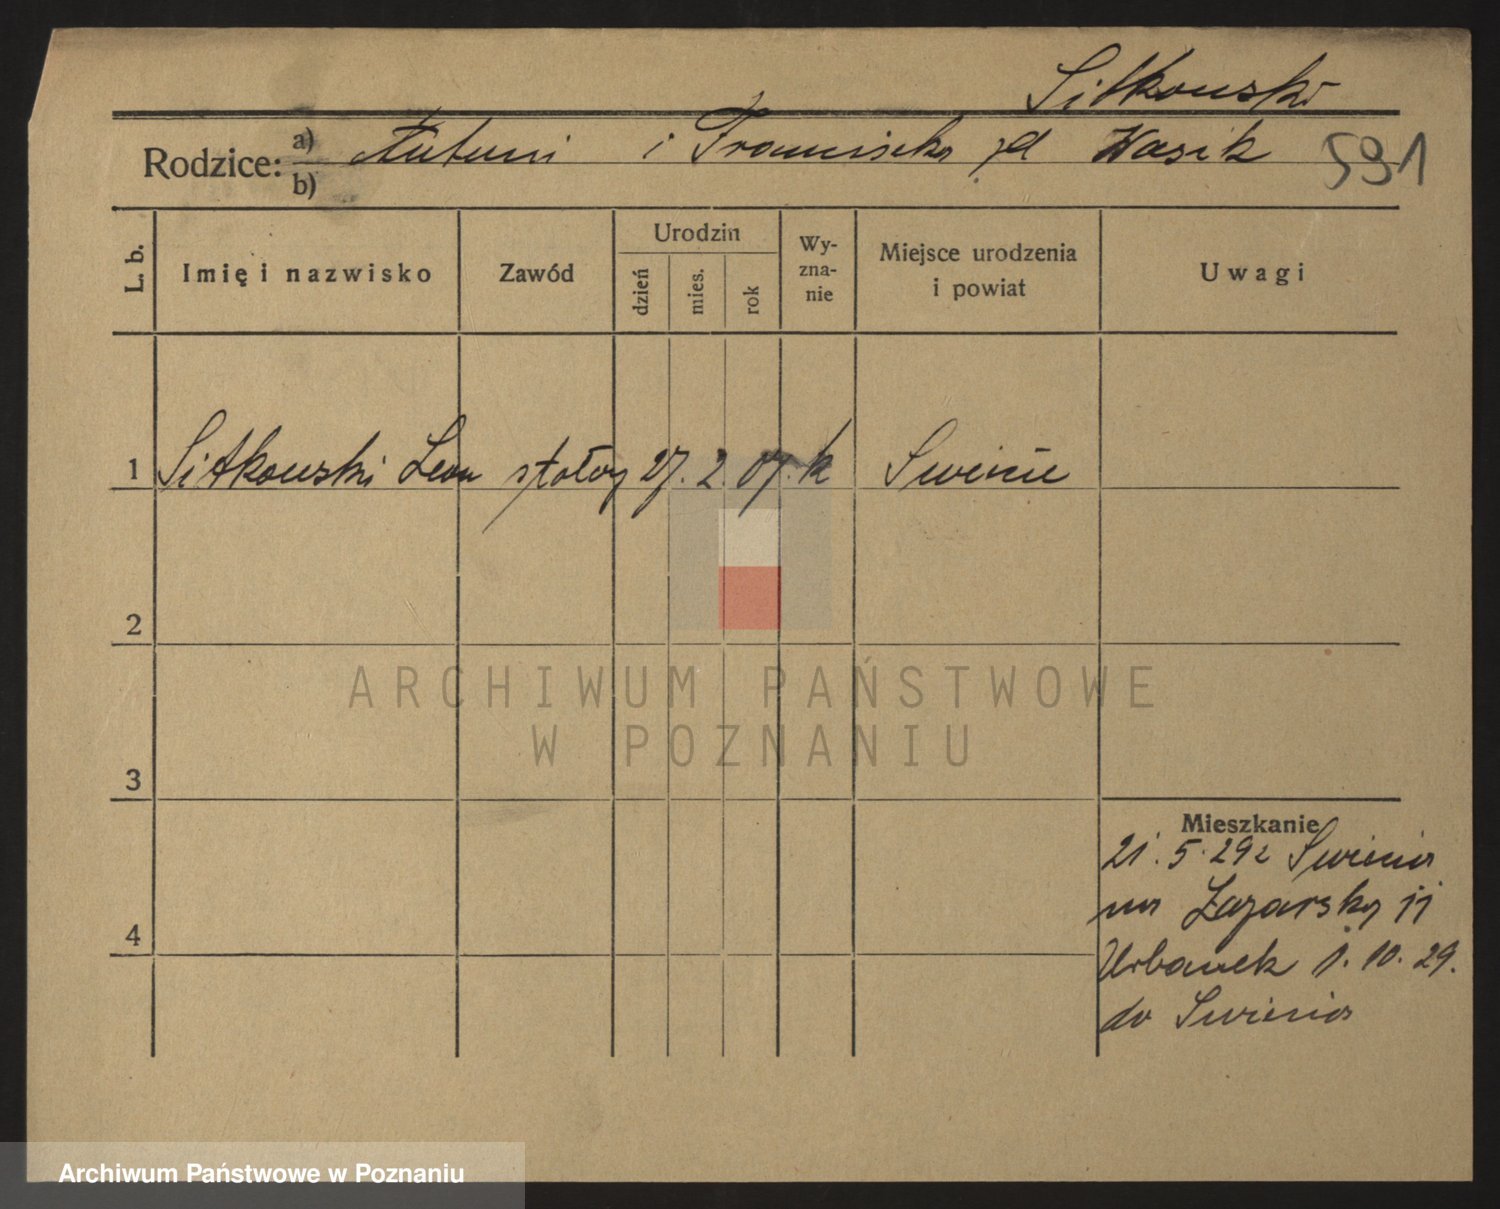 Sitkowski
Rodzice: a) Antoni i Franciszka zd Wasik 591
b)
L. b. Imię i nazwisko Zawód Urodzin dzień mies. rok Wy- zna- nie Miejsce urodzenia i powiat Uwagi
1 Sitkowski Leon 27. 2. 07. k Swieńie
2
ARCHIWUM PAŃSTWOWE
W POZNANIU
3
Mieszkanie
21. 5. 29 z Swienia
na Łazarska 11
4
Urbanek 1. 10. 29.
do Swienia
Archiwum Państwowe w Poznaniu